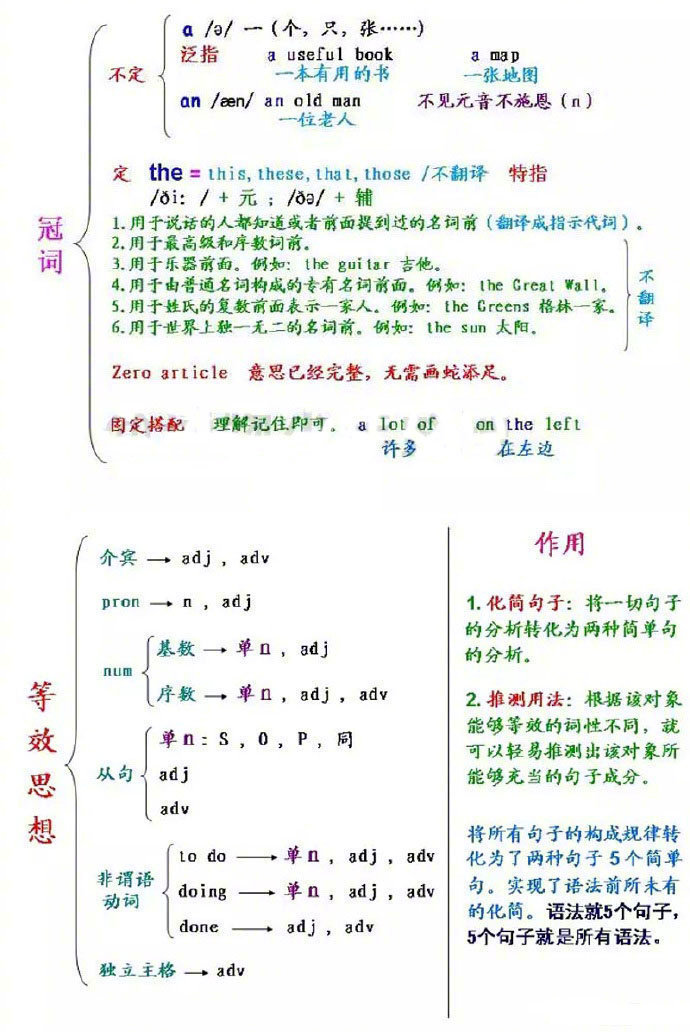 冠词
不定
a /ə/ 一（个，只，张……）
泛指 a useful book a map
一本有用的书 一张地图
an /æn/ an old man 不见元音不施恩（n）
一位老人
定 the = this, these, that, those /不翻译 特指
/ði: / + 元 ; /ðə/ + 辅
1.用于说话的人都知道或者前面提到过的名词前（翻译成指示代词）。
2.用于最高级和序数词前。
3.用于乐器前面。例如: the guitar 吉他。
4.用于由普通名词构成的专有名词前面。例如: the Great Wall。
5.用于姓氏的复数前面表示一家人。例如: the Greens 格林一家。
6.用于世界上独一无二的名词前。例如: the sun 太阳。
不翻译
Zero article 意思已经完整，无需画蛇添足。
固定搭配 理解记住即可。 a lot of on the left
许多 在左边
等效思想
介宾 → adj , adv
pron → n , adj
num
基数 → 单n , adj
序数 → 单n , adj , adv
从句
单n: S , O , P , 同
adj
adv
非谓语动词
to do → 单n , adj , adv
doing → 单n , adj , adv
done → adj , adv
独立主格 → adv
作用
1.化简句子: 将一切句子
的分析转化为两种简单句
的分析。
2.推测用法: 根据该对象
能够等效的词性不同，就
可以轻易推测出该对象所
能够充当的句子成分。
将所有句子的构成规律转
化为了两种句子5个简单
句。实现了语法前所未有
的化简。语法就5个句子，
5个句子就是所有语法。